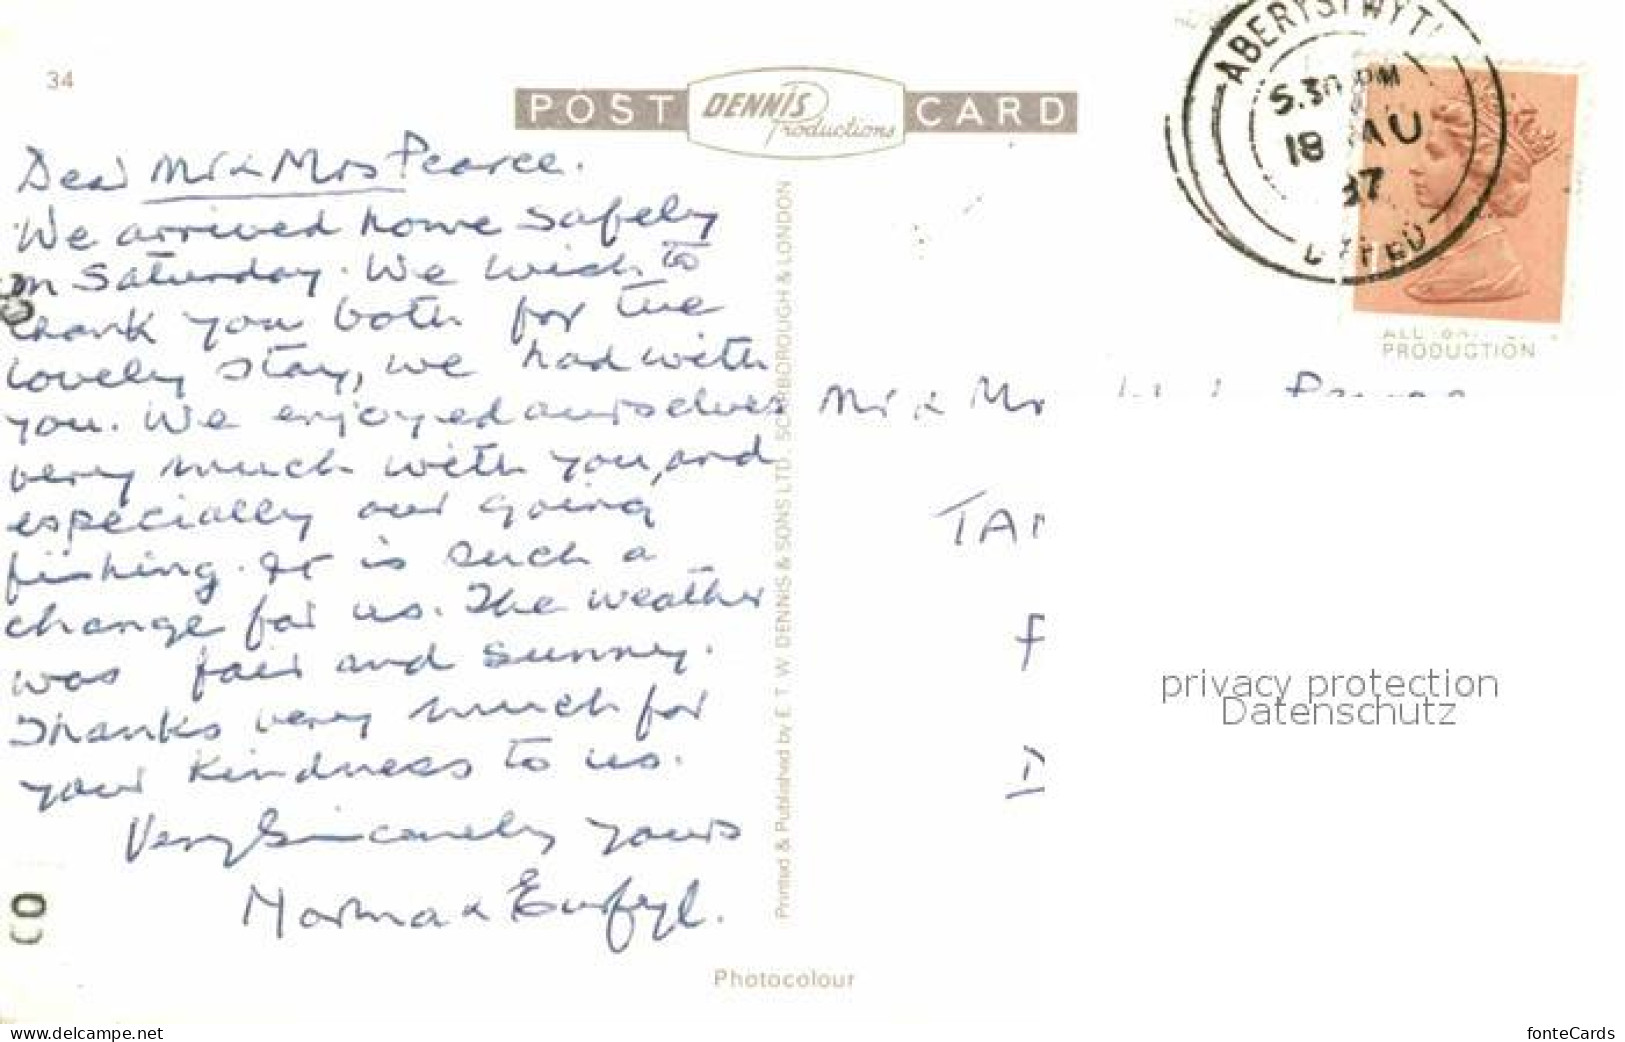 34
POST DENNIS Productions CARD
ABERYSTWYT
5.30 PM
18 AU
87
DYFED
PRODUCTION
Dear Mr & Mrs Pearce.
We arrived home safely
on Saturday. We wish to
thank you both for the
lovely stay, we had with
you. We enjoyed ourselves
very much with you, and
especially our going
fishing. It is such a
change for us. The weather
was fair and sunny.
Thanks very much for
your kindness to us.
Very Sincerely yours
Norma & Eurfyl.
Printed & Published by E. T. W. DENNIS & SONS LTD. SCARBOROUGH & LONDON
Mr & Mr
TAN
F
D
privacy protection
Datenschutz
CO
Photocolour
www.delcampe.net
fonteCards